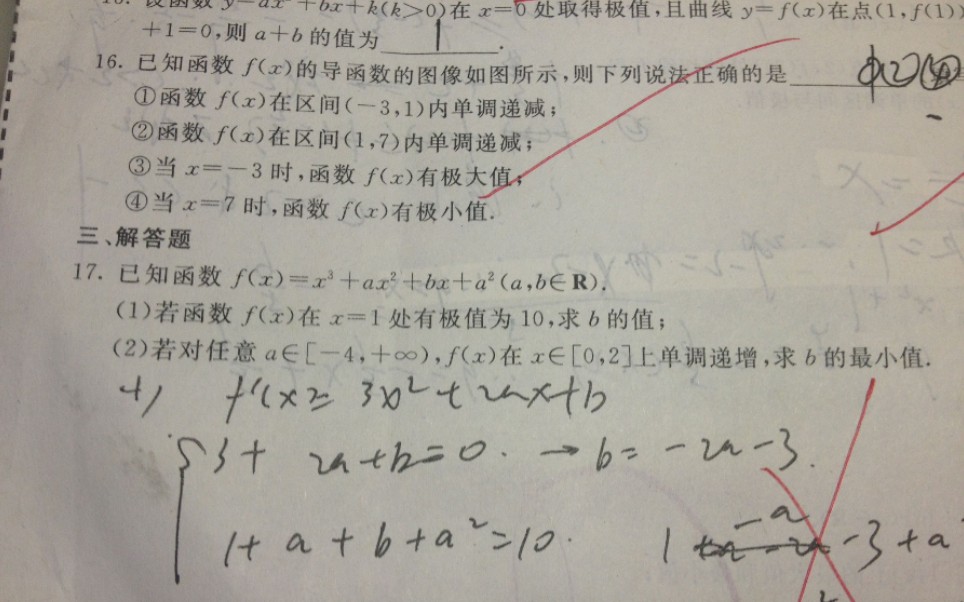 设函数 y=ax +bx+k(k>0)在 x=0 处取得极值,且曲线 y=f(x)在点(1,f(1))
+1=0,则 a+b 的值为 1 .
16. 已知函数 f(x)的导函数的图像如图所示,则下列说法正确的是 ②④
①函数 f(x)在区间(-3,1)内单调递减;
②函数 f(x)在区间(1,7)内单调递减;
③当 x=-3 时,函数 f(x)有极大值;
④当 x=7 时,函数 f(x)有极小值.
三、解答题
17. 已知函数 f(x)=x³+ax²+bx+a²(a,b∈R).
(1)若函数 f(x)在 x=1 处有极值为 10,求 b 的值;
(2)若对任意 a∈[-4,+∞),f(x)在 x∈[0,2]上单调递增,求 b 的最小值.
f'(x)= 3x²+2ax+b
3+ 2a+b=0. → b= -2a-3.
1+a+b+a²=10. 1 -a -3+a